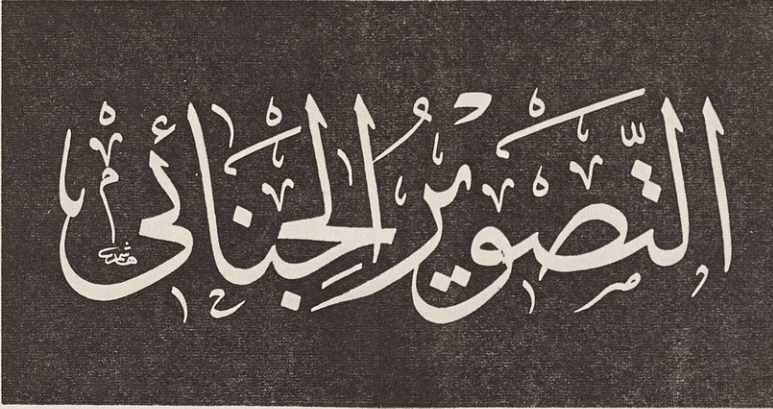 التّصوير الجِنَائي